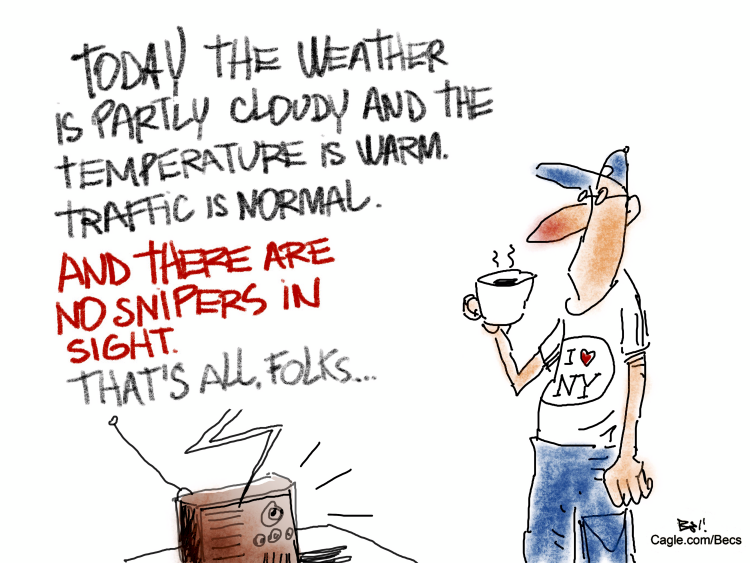 TODAY THE WEATHER
IS PARTLY CLOUDY AND THE
TEMPERATURE IS WARM.
TRAFFIC IS NORMAL.
AND THERE ARE
NO SNIPERS IN
SIGHT.
THAT'S ALL, FOLKS...
I ♥
NY
Cagle.com/Becs